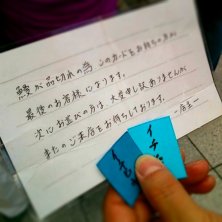 鰻が品切れの為 このカードをお持ちの方が
最後のお客様になります。
次にお並びの方は、大変申し訳ありませんが
またのご来店をお待ちしております。
―店主―
イチ